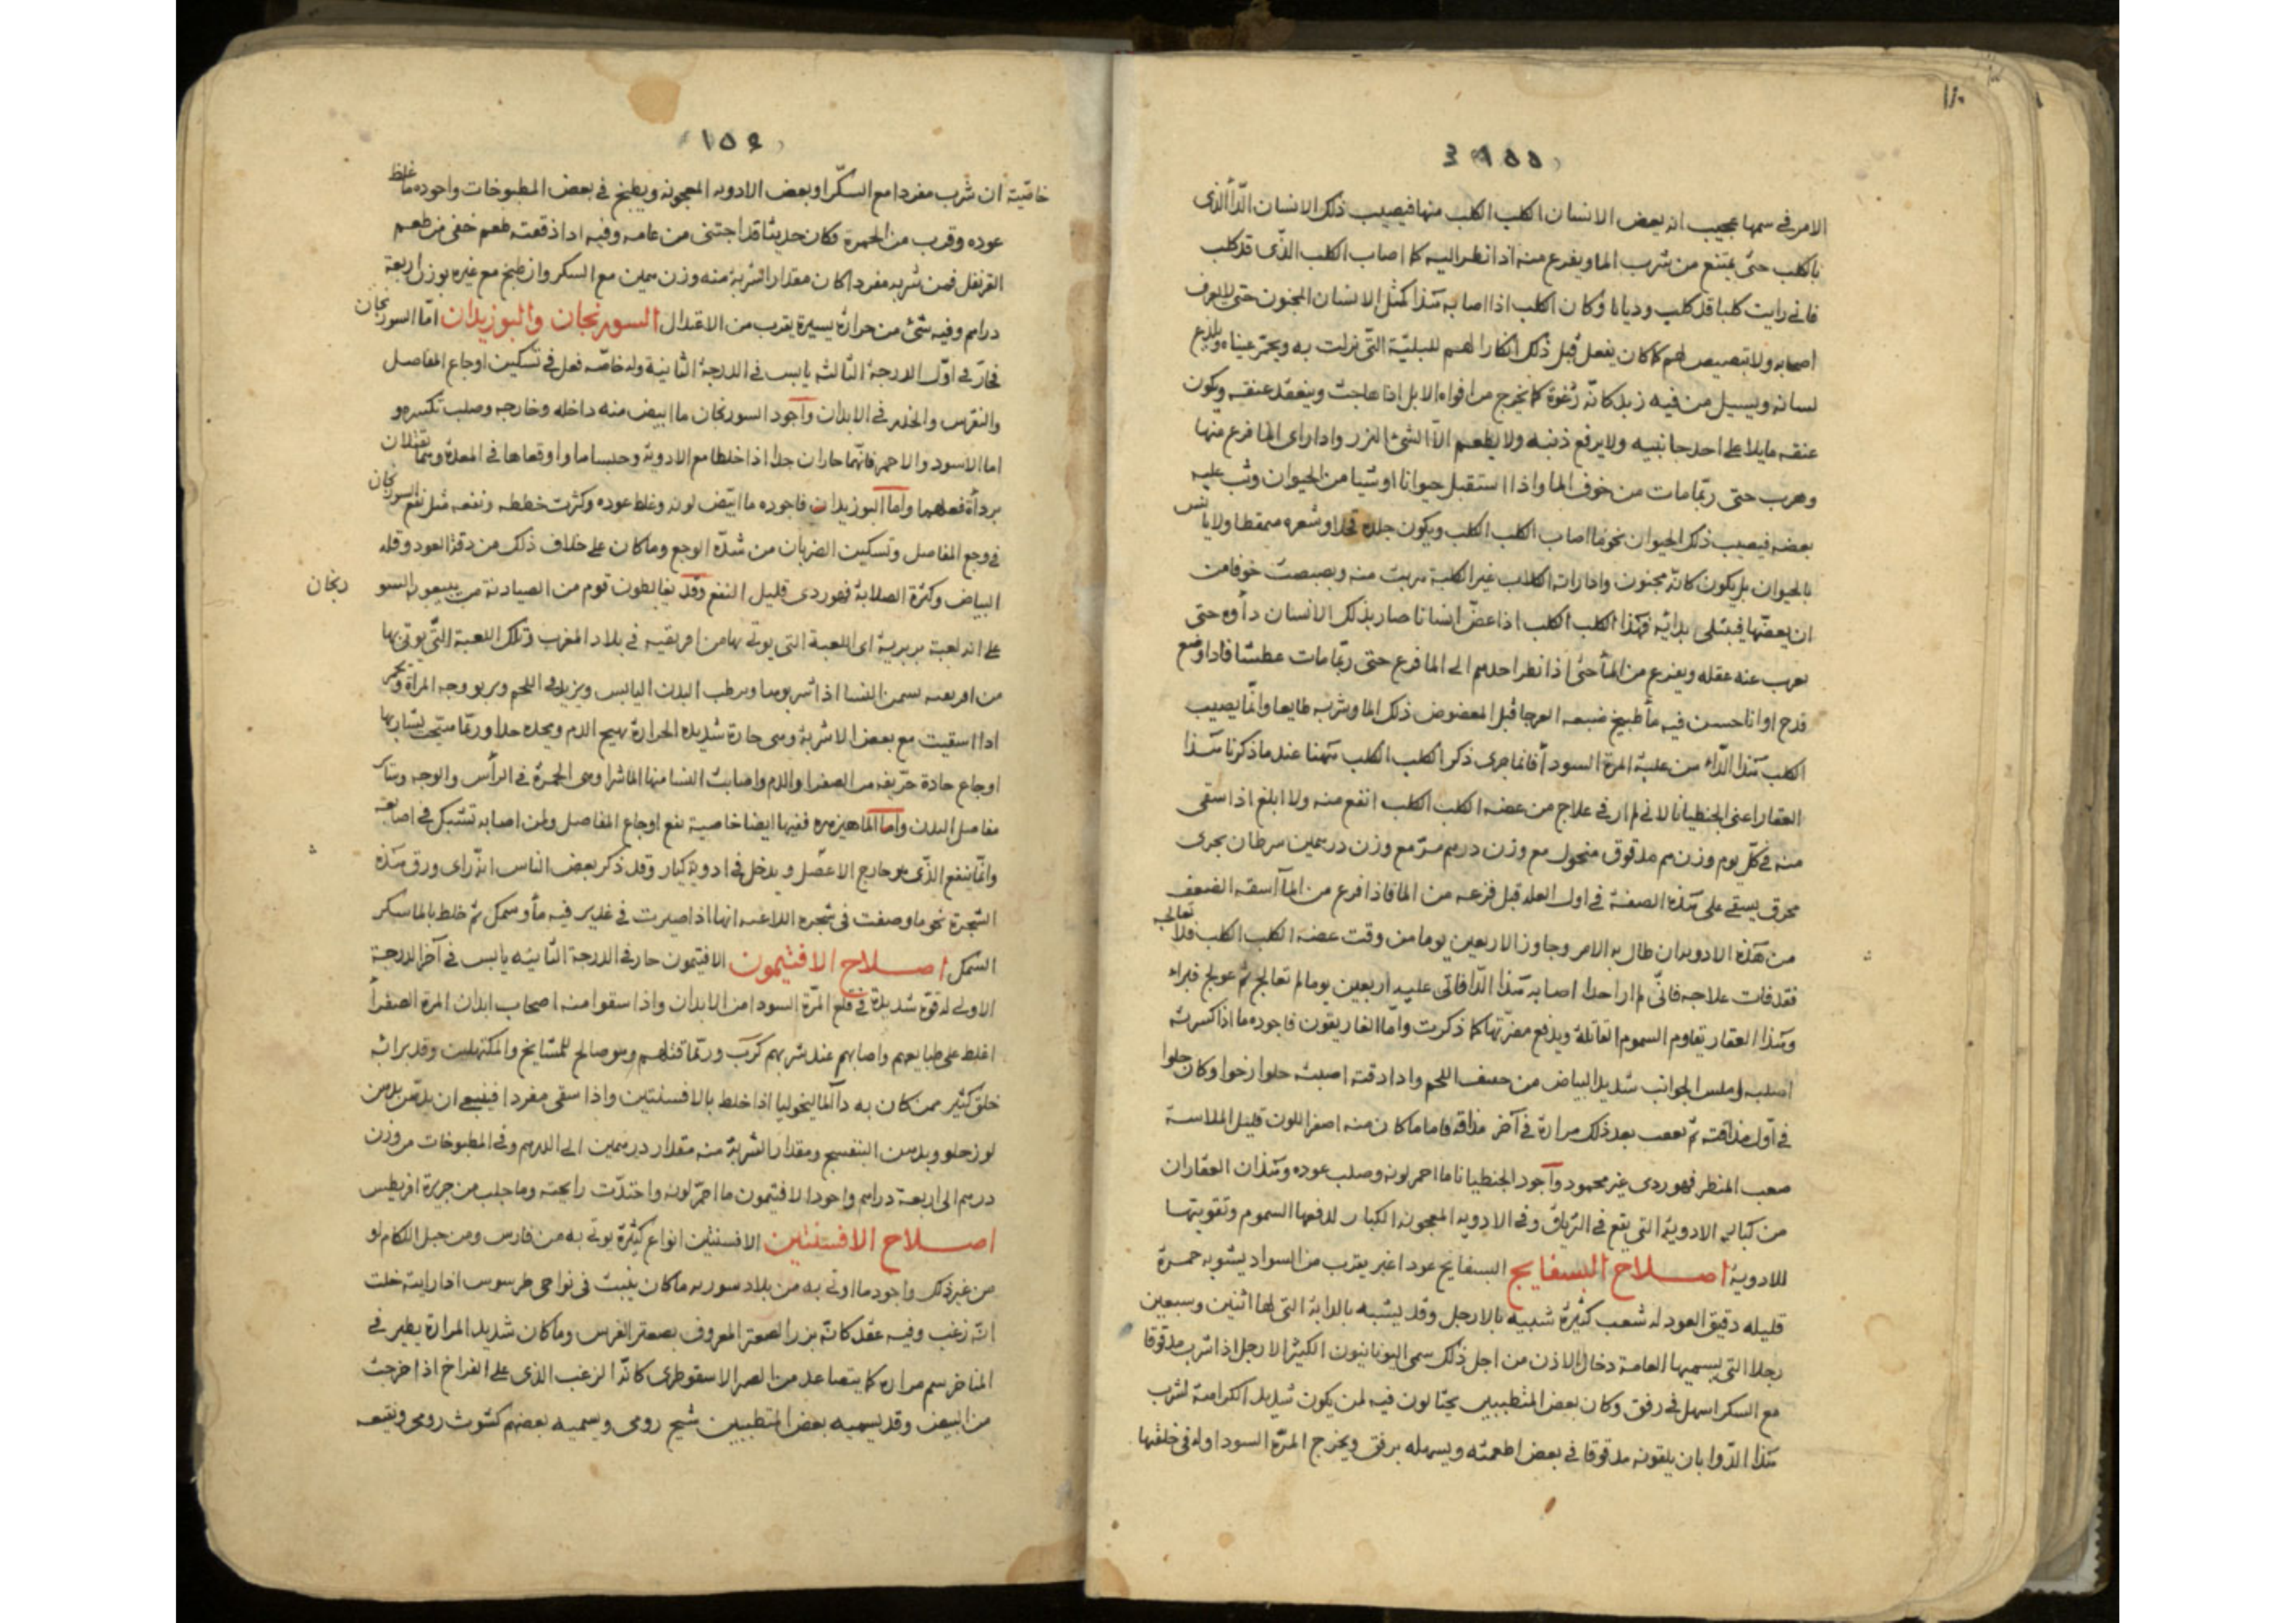 ١١٠
١٥٥
الامر في سمها عجيب انه يعض الانسان الكلب الكلب منها فيصيب ذلك الانسان الدأ الذى
بالكلب حتى يمتنع من شرب الما ويفزع منه اذا نظر اليه كما اصاب الكلب الذى قد كلب
فانى رايت كلبا قد كلب وديانا وكان الكلب اذا اصابه هذا كمثل الانسان المجنون حتى لا يعرف
اصحابه ولا تبصبص لهم كما كان يفعل قبل ذلك انكارا لهم للبليّة التى نزلت به ويحمرّ عيناه ويلدغ
لسانه ويسيل من فيه زبد كانّه رُغوة كما يخرج من افواه الابل اذا هاجت وينعقد عنقه ويكون
عنقه مايلا على احد جانبيه ولا يرفع ذنبه ولا يطعم الّا الشئ النزر واذا راى الما فزع منها
وهرب حتى ربّما مات من خوف الما واذا استقبل حيوانا او شيا من الحيوان وثب عليه
بعضه فيصيب ذلك الحيوان نحو ما اصاب الكلب الكلب ويكون جلده قحلا وشعره ممقطا ولا يانس
بالحيوان بل يكون كانّه مجنون واذا راته الكلاب غير الكلبة هربت منه وبصبصت خوفا من
ان يعضّها فيبتلى بدائه فهذا الكلب الكلب اذا عضّ انسانا صار بذلك الانسان دأوه حتى
يعرب عنه عقله ويفزع من المأ حتى اذا نظر احدهم الى الما فزع حتى ربّما مات عطشا فاذا وضع
قدح او انا حسن فيه مأ طبيخ ضبعه العرجا قبل المعضوض ذلك الما وشربه طايعا وانّما يصيب
الكلب هذا الدّاء من علبة المرة السودأ فانما جرى ذكر الكلب الكلب ههنا عند ما ذكرنا هذا
العقار اعنى الجنطيانا لانى لم ار فى علاج من عضه الكلب الكلب انفع منه ولا ابلغ اذا سقى
منه فى كلّ يوم وزن درهم مدقوق منخول مع وزن درهم مرّ مع وزن درهمين سرطان بحرى
محرق يسقى على هذه الصفة فى اول العلة قبل فزعه من الما فاذا فزع من المآ اسقه الضعف
من هذه الادويه ان طال به الامر وجاوز الاربعين يوما من وقت عضه الكلب الكلب فلا تعالجه
فقد فات علاجه فانّى لم ار احدا اصابه هذا الدّا فاتى عليه اربعين يوما لم تعالج ثم عولج فبراء
وهذا العقار يقاوم السموم القاتلة ويدفع مضرّتها كما ذكرت وامّا الغاريقون فاجوده ما اذا كسرته
اصلبه املس الجوانب شديد البياض من خفيف اللحم واذا ذقته اصبته حلوا رخوا وكان حلوا
فى اوّل مذاقته ثم يعقب بعد ذلك مرارة فى آخر مذاقه فاما ما كان منه اصفر اللون قليل الملاسة
صعب المنظر فهو ردى غير محمود وأجود الجنطيانا ما احمر لونه وصلب عوده وهذان العقاران
من كبار الادوية التى يقع فى الترياق وفى الادويه المعجونه الكبار لدفعها السموم وتقويتها
للادوية اصلاح البسفايج البسفايج عود اغبر يقرب من السواد يشوبه حمرة
قليله دقيق العود له شعب كثيرة شبيه بالارجل وقد يشبه بالدابة التى لها اثنين وسبعين
رجلا التى يسميها العامة دخال الاذن من اجل ذلك سمى اليونانيون الكثير الارجل اذا شرب مدقوقا
مع السكر اسهل فى رفق وكان بعض المتطببين يحتالون فيه لمن يكون شديد الكراهة لشرب
هذا الدّوا بان يلقونه مدقوقا فى بعض اطعمته ويسهله برفق ويخرج المرّة السودا وله فى خلفها
١٥٦
خاصّية ان شرب مفردا مع السكّر او بعض الادويه المعجونه ويطبخ فى بعض المطبوخات واجوده ما غلظ
عوده وقرب من الحمرة وكان حديثا قد اجتنى من عامه وفيه اذا ذقته طعم خفى من طعم
القرنفل فمن شربه مفردا كان مقدار الشربة منه وزن درهمين مع السكر وان طبخ مع غيره بوزن اربعة
دراهم وفيه شئ من حرارة يسيرة يقرب من الاعتدال السورنجان والبوزيدان امّا السورنجان
فحارّ فى اوّل الدرجة الثالثه يابس فى الدرجة الثانية وله خاصّه فعل فى تسكين اوجاع المفاصل
والنقرس والخدر فى الابدان وأجود السورنجان ما ابيض منه داخله وخارجه وصلب تكسيره و
اما الاسود والاحمر فانّهما حاران جدا اذا خلطا مع الادوية وحبساها واوقعاها فى المعدة وربما تقتلان
برداة فعلهما وأما البوزيدان فاجوده ما ابيّض لونه وغلظ عوده وكثرت خططه ونفعه مثل نفع السورنجان
فى وجع المفاصل وتسكين الضربان من شدّة الوجع وما كان على خلاف ذلك من دقة العود وقله
البياض وكثرة الصلابة فهو ردى قليل النفع وقد يغالطون قوم من الصيادنة من يبيعون السو رنجان
على انه لعبة بربرية اى اللعبة التى يوتى بها من افريقيه فى بلاد المغرب وتلك اللعبة التى يوتى بها
من افريقيه يسمن النسا اذا شربوها ويرطب البدن اليابس ويزيد فى اللحم ويربو وجه المراة وتحمر
اذا اسقيت مع بعض الاشربة وهى حارة شديدة الحرارة تهيج الدم ويحده جدا وربّما هيّجت بشاربها
اوجاع حادة حرّيفه من الصفرا والدم واصابت النسا منها الماشرا وهى الحمرة فى الرأس والوجه وساير
مفاصل البدن وأما الماهيزهره ففيها ايضا خاصية نفع اوجاع المفاصل ولمن اصابه تشبك فى اصابعه
وانّما ينفع الذى هو خارج الاعضل ويدخل فى ادوية كبار وقد ذكر بعض الناس انه راى ورق هذه
الشجرة نحو ما وصفت فى شجره اللاعيه انها اذا صيرت فى غدير فيه مأ وسمك ثم خلط بالما سكر
السمك اصلاح الافتيمون الافتيمون حار فى الدرجة الثانيه يابس فى آخر الدرجة
الاولى له قوة شديدة فى قلع المرّة السودا من الابدان واذا سقوا منه اصحاب ابدان المرة الصفرأ
اغلظ على طبايعهم واصابهم عند شربهم كرب وربّما قتلهم وهو صالح للمشايخ والمكتهلين وقد برا به
خلق كثير ممن كان به دآ الماليخوليا اذا خلط بالافسنتين واذا سقى مفردا فينبغى ان يدسّم بدهن
لوز حلو وبدهن البنفسج ومقدار الشربة منه مقدار درهمين الى الدرهم وفى المطبوخات من وزن
درهم الى اربعة دراهم واجود الافتيمون ما احمرّ لونه واحتدّت رايحته وما جلب من جزيرة اقريطيس
اصلاح الافسنتين الافسنتين انواع كثيرة يوتى به من فارس ومن جبل اللكام او
من غير ذلك واجود ما اوتى به من بلاد سوريه ما كان ينبت فى نواحى طرسوس اذا رايته خلت
انّه زغب وفيه عقد كانّه بزر الصعتر المعروف بصعتر الفرس وما كان شديد المرارة يطير فى
المناخر سم مراره كما يتصاعد من الصبر الاسقوطرى كانّه الزغب الذى على الفراخ اذا خرجت
من البيض وقد يسميه بعض المتطببين شيح رومى ويسميه بعضهم كشوث رومى ونقيعه